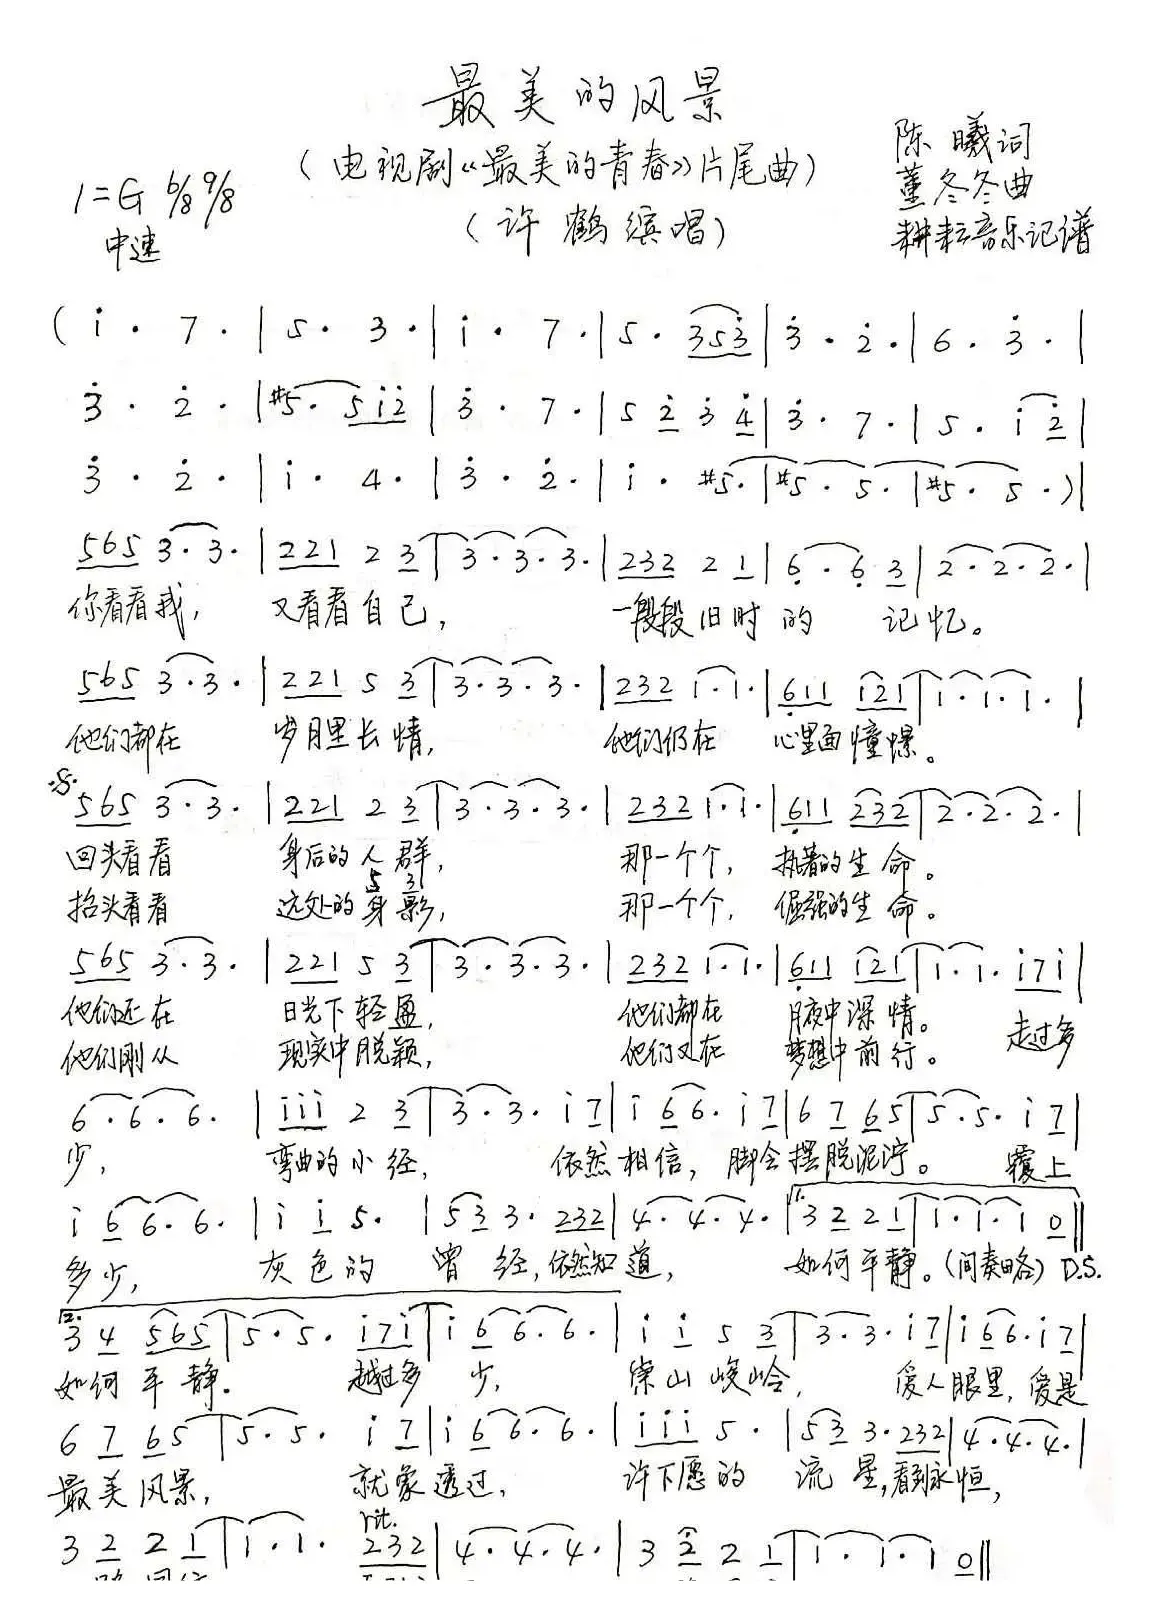 最美的风景
(电视剧《最美的青春》片尾曲)
(许鹤缤唱)
陈曦词
董冬冬曲
耕耘音乐记谱
1=G 6/8 9/8
中速
(i· 7·|5· 3·|i· 7·|5· 353̇|3̇· 2̇·|6· 3̇·|
3̇· 2̇·|#5· 5i2̇|3̇· 7·|5 2̇ 3̇ 4̇|3̇· 7·|5· i 2̇|
3̇· 2̇·|i· 4·|3̇· 2̇·|i· #5·|#5· 5·|#5· 5·)|
565 3·3·|221 2 3|3·3·3·|232 2 1|6̣·6̣ 3|2·2·2·|
你看看我, 又看看自己, 一段段旧时的 记忆。
565 3·3·|221 5 3|3·3·3·|232 1·1·|6̣11 121|1·1·1·|
他们都在 岁月里长情, 他们仍在 心里面憧憬。
565 3·3·|221 2 3|3·3·3·|232 1·1·|6̣11 232|2·2·2·|
回头看看 身后的人群, 那一个个, 执著的生命。
5 3
抬头看看 远处的身影, 那一个个, 倔强的生命。
565 3·3·|221 5 3|3·3·3·|232 1·1·|6̣11 121|1·1· i7i|
他们还在 日光下轻盈, 他们都在 月夜中深情。 走过多
他们刚从 现实中脱颖, 他们又在 梦想中前行。
6·6·6·|iii 2 3|3·3· i 7|i 6 6· i 7|6 7 65|5·5· i 7|
少, 弯曲的小经, 依然相信, 脚会摆脱泥泞。 覆上
i 6 6·6·|i i 5·|53 3· 232|4·4·4·|1. 3 2 2 1|1·1·1 0‖
多少, 灰色的 曾经,依然知道, 如何平静。(间奏略) D.S.
2. 3 4 565|5·5· i7i|i 6 6·6·|i i 5 3|3·3· i 7|i 66· i 7|
如何平静. 越过多少, 崇山峻岭, 爱人眼里, 爱是
6 7 65|5·5· i 7|i 6 6·6·|iii 5·|53 3·232|4·4·4·|
最美风景, 就象透过, 许下愿的 流星,看到永恒,
rit.
3 2 2 1|1·1· 232|4·4·4·|3 2 2 1|1·1·1 0‖